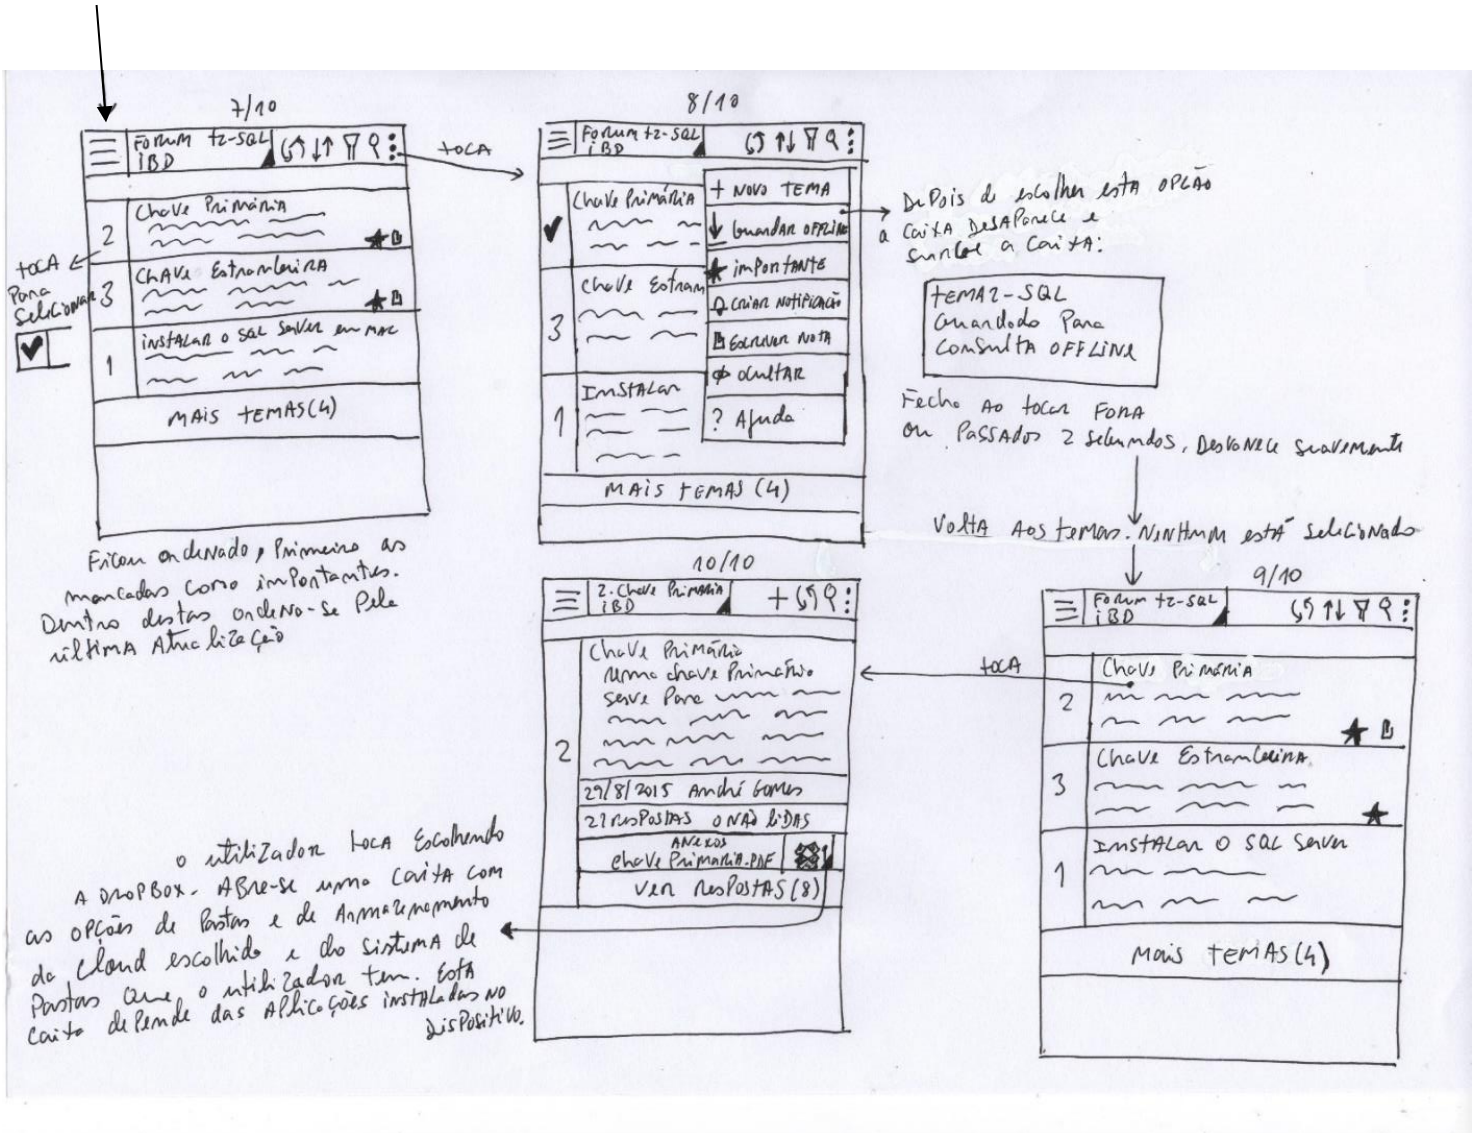 7/10
Forum t2-SQL
iBD
toca
2
Chave Primária
toca
Para
selecionar
3
Chave Estrangeira
1
instalar o SQL Server em mac
mais temas(4)
Ficou ordenado, Primeiro as
marcadas como importantes.
Dentro destas ordena-se Pela
última Atualização
8/10
Forum t2-SQL
iBD
Chave Primária
3
Chave Estran
1
Instalar
+ Novo TEMA
Guardar OFFLINE
importante
Criar Notificação
Escrever Nota
ocultar
? Ajuda
mais temas (4)
Depois de escolher esta opção
a caixa desaparece e
surge a caixa:
TEMA2-SQL
Guardado Para
Consulta OFFLINE
Fecha ao tocar fora
ou passados 2 segundos. Desvanece suavemente
Volta aos temas. Ninhum está selecionado
9/10
Forum t2-SQL
iBD
2
Chave Primária
3
Chave Estrangeira
1
Instalar o SQL Server
mais temas(4)
toca
10/10
2. Chave Primária
iBD
+
2
Chave Primária
uma chave Primária
serve Para
29/8/2015 André Gomes
21 respostas 0 não lidas
Anexos
chave Primaria.PDF
ver respostas(8)
o utilizador toca Escolhendo
A DropBox. Abre-se uma caixa com
as opções de Pastas e de Armazenamento
da Cloud escolhida e do sistema de
Pastas que o utilizador tem. Esta
caixa depende das aplicações instaladas no
dispositivo.